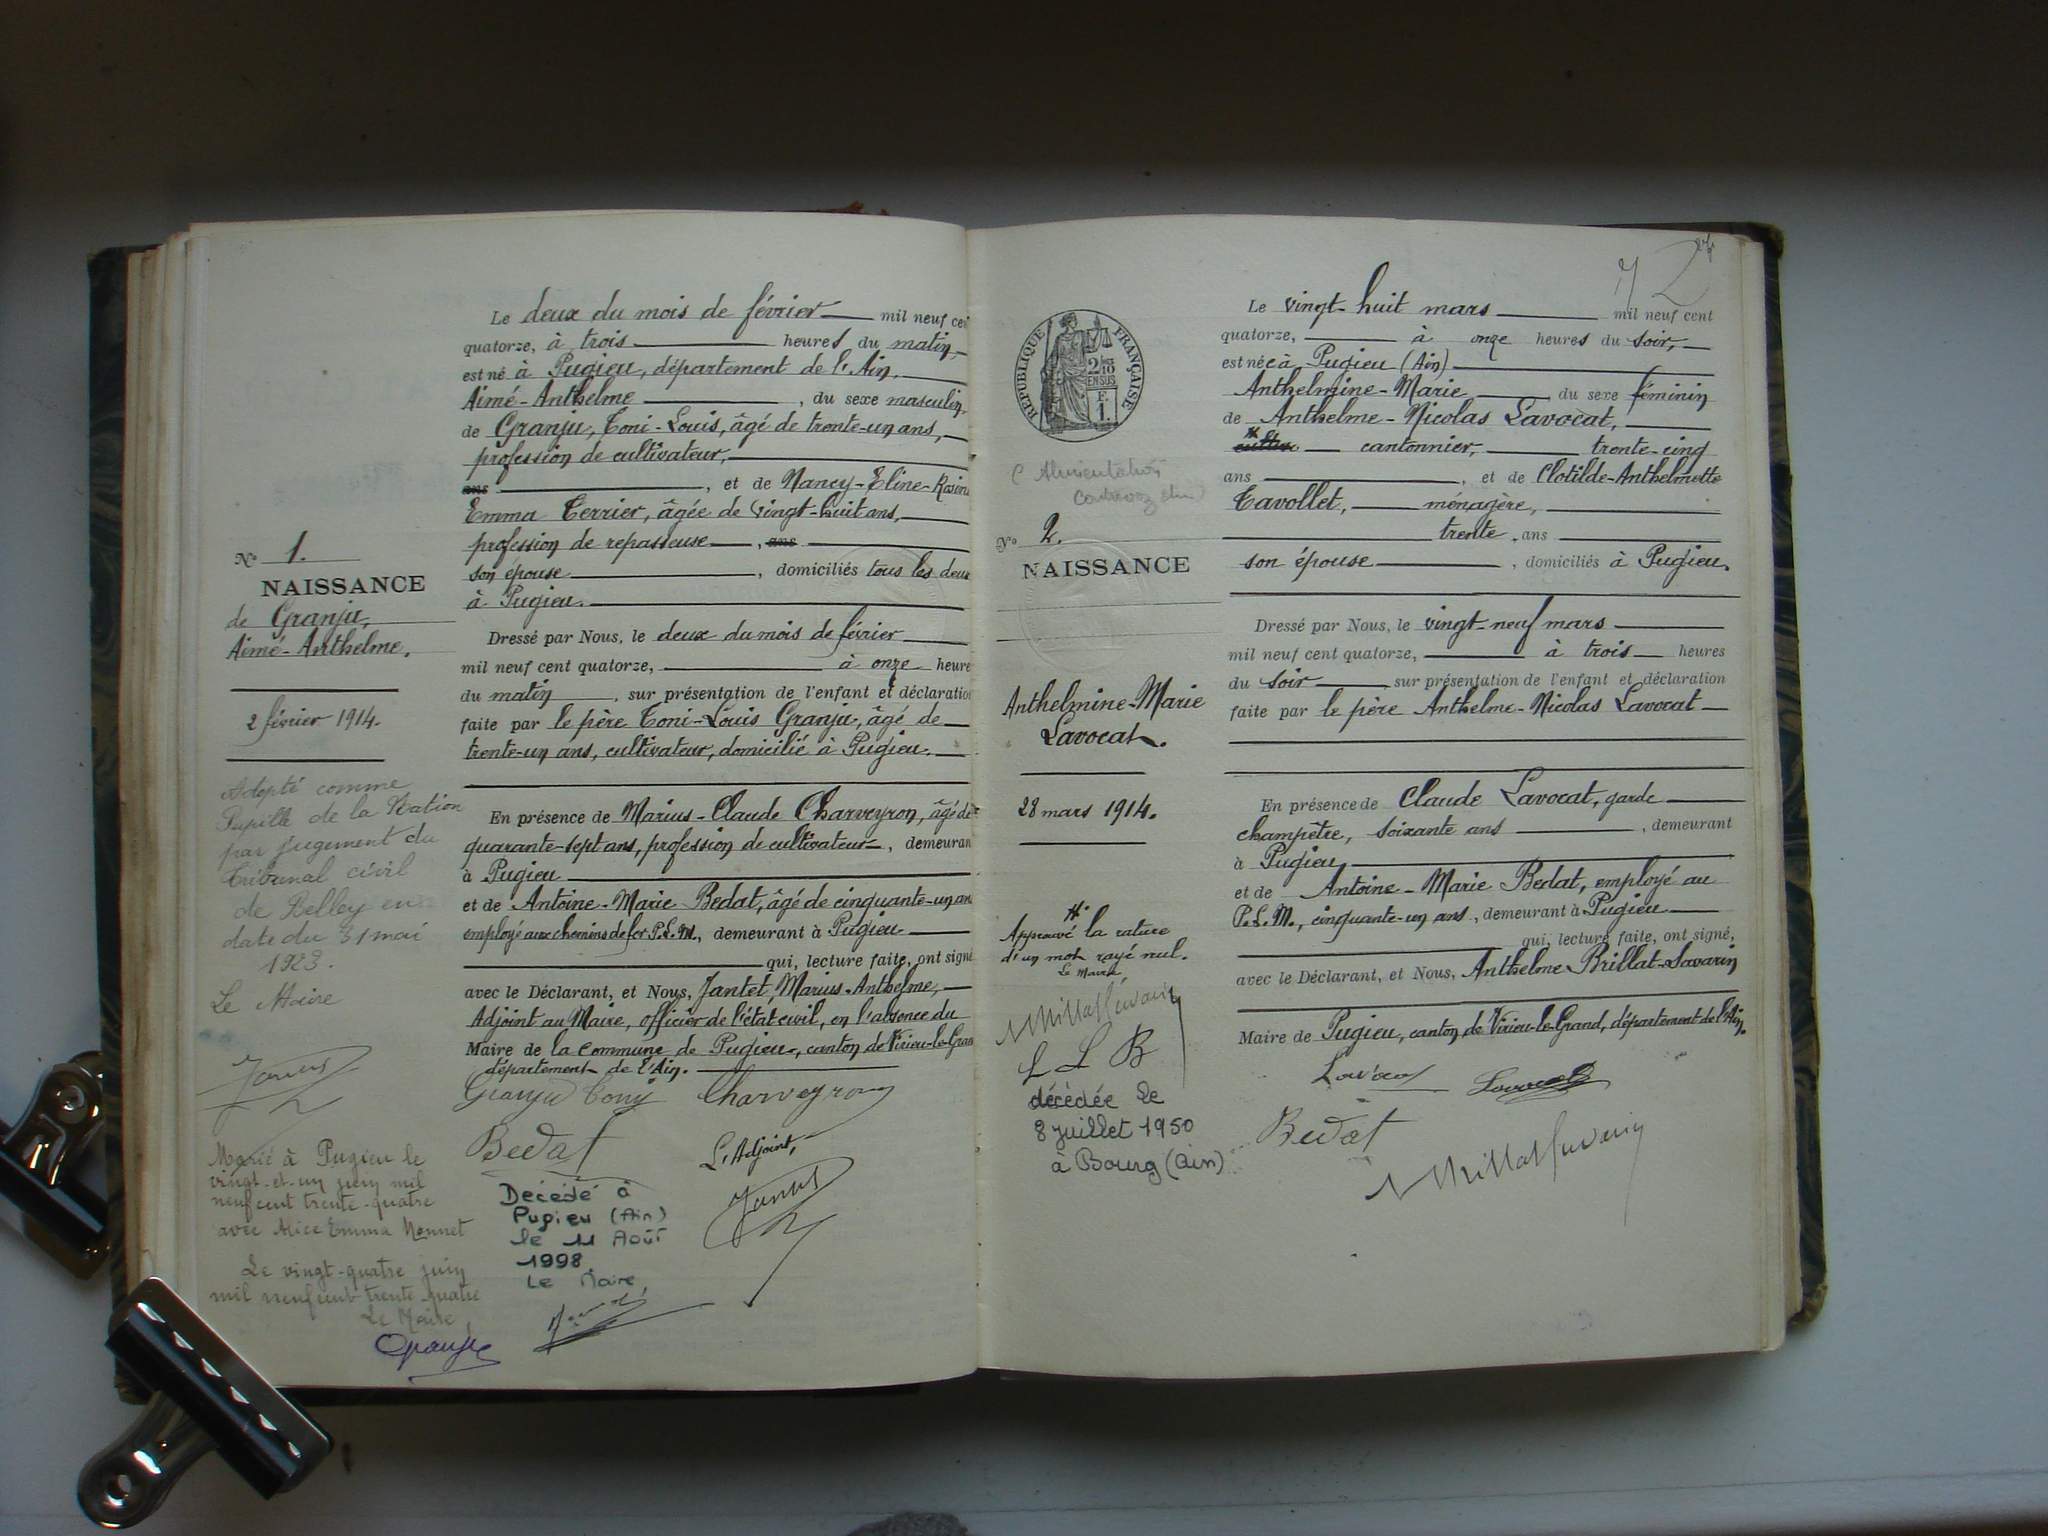 Le deux du mois de février mil neuf cen
quatorze, à trois heures du matin
est né à Pugieu, département de l'Ain.
Aimé-Anthelme, du sexe masculin,
de Granju, Toni-Louis, âgé de trente-un ans,
profession de cultivateur,
ans, et de Nancy-Eline-Rosine
Emma Terrier, âgée de vingt-huit ans,
profession de repasseuse, ans
son épouse, domiciliés tous les deux
à Pugieu.
Dressé par Nous, le deux du mois de février
mil neuf cent quatorze, à onze heure
du matin, sur présentation de l'enfant et déclaration
faite par le père Toni-Louis Granju, âgé de
trente-un ans, cultivateur, domicilié à Pugieu.
En présence de Marius-Claude Charveyron, âgé de
quarante-sept ans, profession de cultivateur, demeuran
à Pugieu
et de Antoine-Marie Bedat, âgé de cinquante-un ans
employé aux chemins de fer P.L.M., demeurant à Pugieu
qui, lecture faite, ont signé
avec le Déclarant, et Nous, Jantet, Marius-Anthelme,
Adjoint au Maire, officier de l'état civil, en l'absence du
Maire de la Commune de Pugieu, canton de Virieu-le-Gran
département de l'Ain.
Granju Tony Charveyron
Bedat
L'Adjoint,
Décédé à
Pugieu (Ain)
le 11 Août
1998
Le Maire,
N° 1.
NAISSANCE
de Granju,
Aimé-Anthelme.
2 février 1914.
Adopté comme
Pupille de la Nation
par jugement du
Tribunal civil
de Belley en
date du 31 mai
1923.
Le Maire
Marié à Pugieu le
vingt-et-un juin mil
neuf cent trente-quatre
avec Alice Emma Monnet
Le vingt-quatre juin
mil neuf cent trente quatre
Le Maire,
Granju
72
RÉPUBLIQUE FRANÇAISE
2/10
EN SUS
F.
1.
Alimentation
N° 2.
NAISSANCE
Anthelmine-Marie
Lavocat.
28 mars 1914.
Approuvé la rature
d'un mot rayé nul.
Le Maire
L L B
décédée le
8 juillet 1950
à Bourg (Ain)
Le vingt-huit mars mil neuf cent
quatorze, à onze heures du soir,
est née à Pugieu (Ain)
Anthelmine-Marie du sexe féminin
de Anthelme-Nicolas Lavocat,
cantonnier, trente-cinq
ans, et de Clotilde-Anthelmette
Tavollet, ménagère,
trente, ans
son épouse, domiciliés à Pugieu.
Dressé par Nous, le vingt-neuf mars
mil neuf cent quatorze, à trois heures
du soir sur présentation de l'enfant et déclaration
faite par le père Anthelme-Nicolas Lavocat
En présence de Claude Lavocat, garde
champêtre, soixante ans, demeurant
à Pugieu
et de Antoine-Marie Bedat, employé au
P.L.M., cinquante-un ans, demeurant à Pugieu
qui, lecture faite, ont signé,
avec le Déclarant, et Nous, Anthelme Brillat-Savarin
Maire de Pugieu, canton de Virieu-le-Grand, département de l'Ain.
Lavocat Lavocat
Bedat